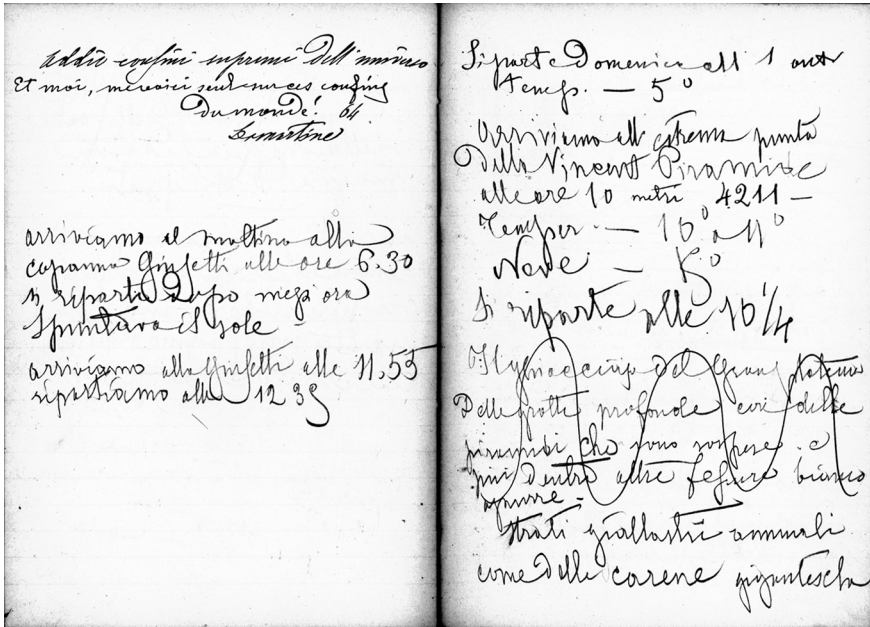 addio confini supremi dell'universo
Et moi, me voici seul aux confins
du monde! 64.
Lamartine
arriviamo il mattino alla
capanna Gnifetti alle ore 6.30
si riparte dopo mezz'ora
Spuntava il sole –
arriviamo alla Gnifetti alle 11.55
ripartiamo alle 12 35
Si parte Domenica all' 1 ant
Temp. — 5°
Arriviamo all estrema punta
della Vincent Piramide
alle ore 10 metri 4211 —
Temper. — 10° a 11°
Neve — 8°
Si riparte alle 10 1/4
Il ghiacciaio del
Delle grotte profonde con delle
piramidi che sono sospese e
più dentro altre fessure bianco
azzurre –
Strati giallastri annuali
come delle carene gigantesche